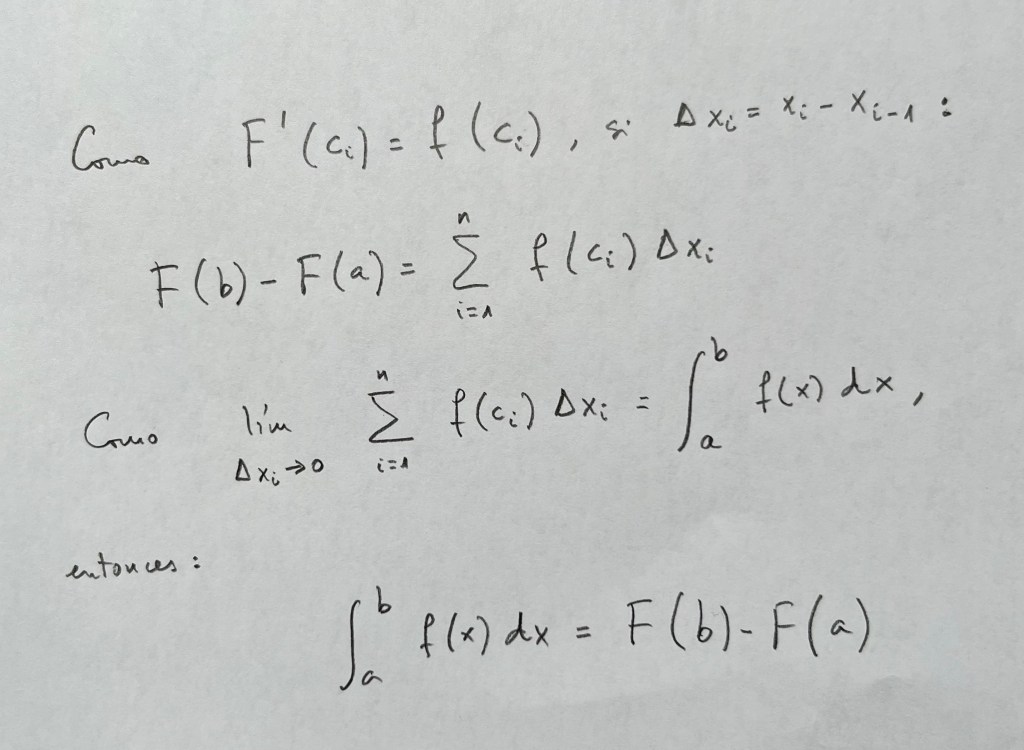 Como F'(cᵢ) = f(cᵢ), si Δxᵢ = xᵢ - xᵢ₋₁ :
F(b) - F(a) = ∑ᵢ₌₁ⁿ f(cᵢ) Δxᵢ
Como lím_{Δxᵢ→0} ∑ᵢ₌₁ⁿ f(cᵢ) Δxᵢ = ∫ₐᵇ f(x) dx,
entonces:
∫ₐᵇ f(x) dx = F(b) - F(a)